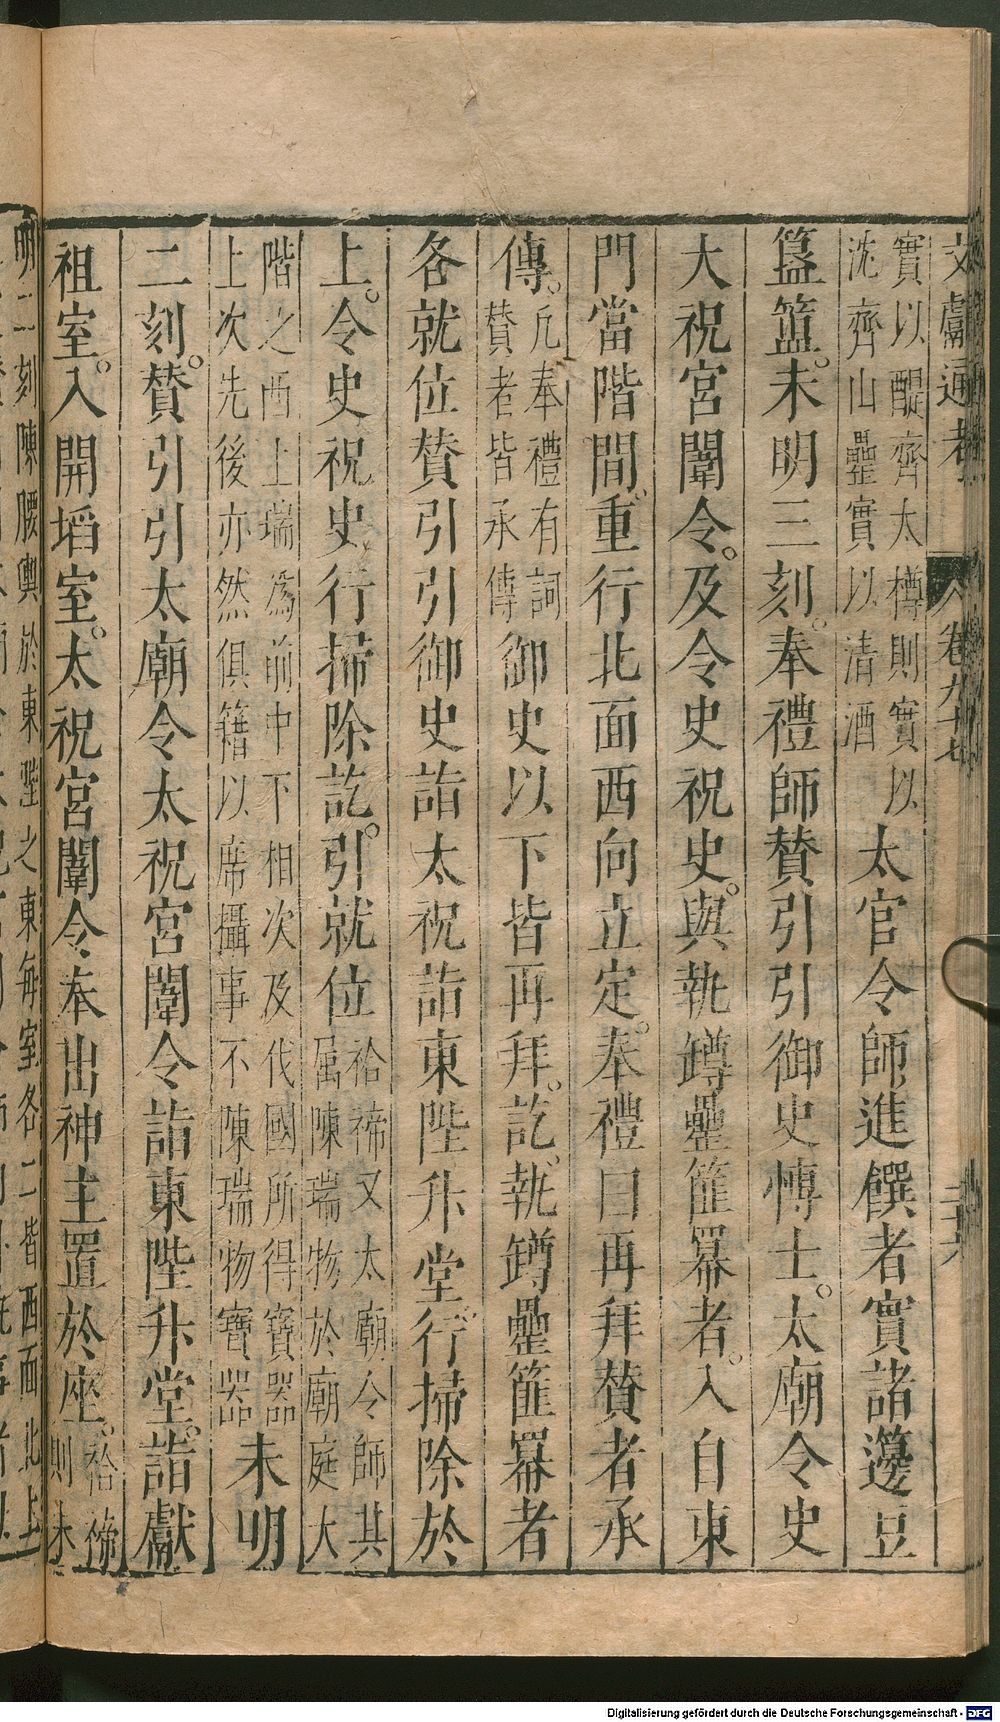 文獻通考 卷九十七 二十六
實以醍齊太樽則實以
沈齊山罍實以清酒
太官令師進饌者實諸籩豆
簋簠未明三刻奉禮師贊引引御史博士太廟令史
大祝宮闈令及令史祝史與執罇罍篚冪者入自東
門當階間重行北面西向立定奉禮曰再拜贊者承
傳
凡奉禮有詞
贊者皆承傳
御史以下皆再拜訖執罇罍篚冪者
各就位贊引引御史詣太祝詣東陛升堂行掃除於
上令史祝史行掃除訖引就位
祫禘又太廟令師其
属陳瑞物於廟庭大
階之西上瑞為前中下相次及伐國所得寶器
上次先後亦然俱籍以席攝事不陳瑞物寶器
未明
二刻贊引引太廟令太祝宮闈令詣東陛升堂詣獻
祖室入開埳室太祝宮闈令奉出神主置於座
祫禘
則未
明二刻陳腰輿於東陛之東每室各二皆西面北上
Digitalisierung gefördert durch die Deutsche Forschungsgemeinschaft - DFG